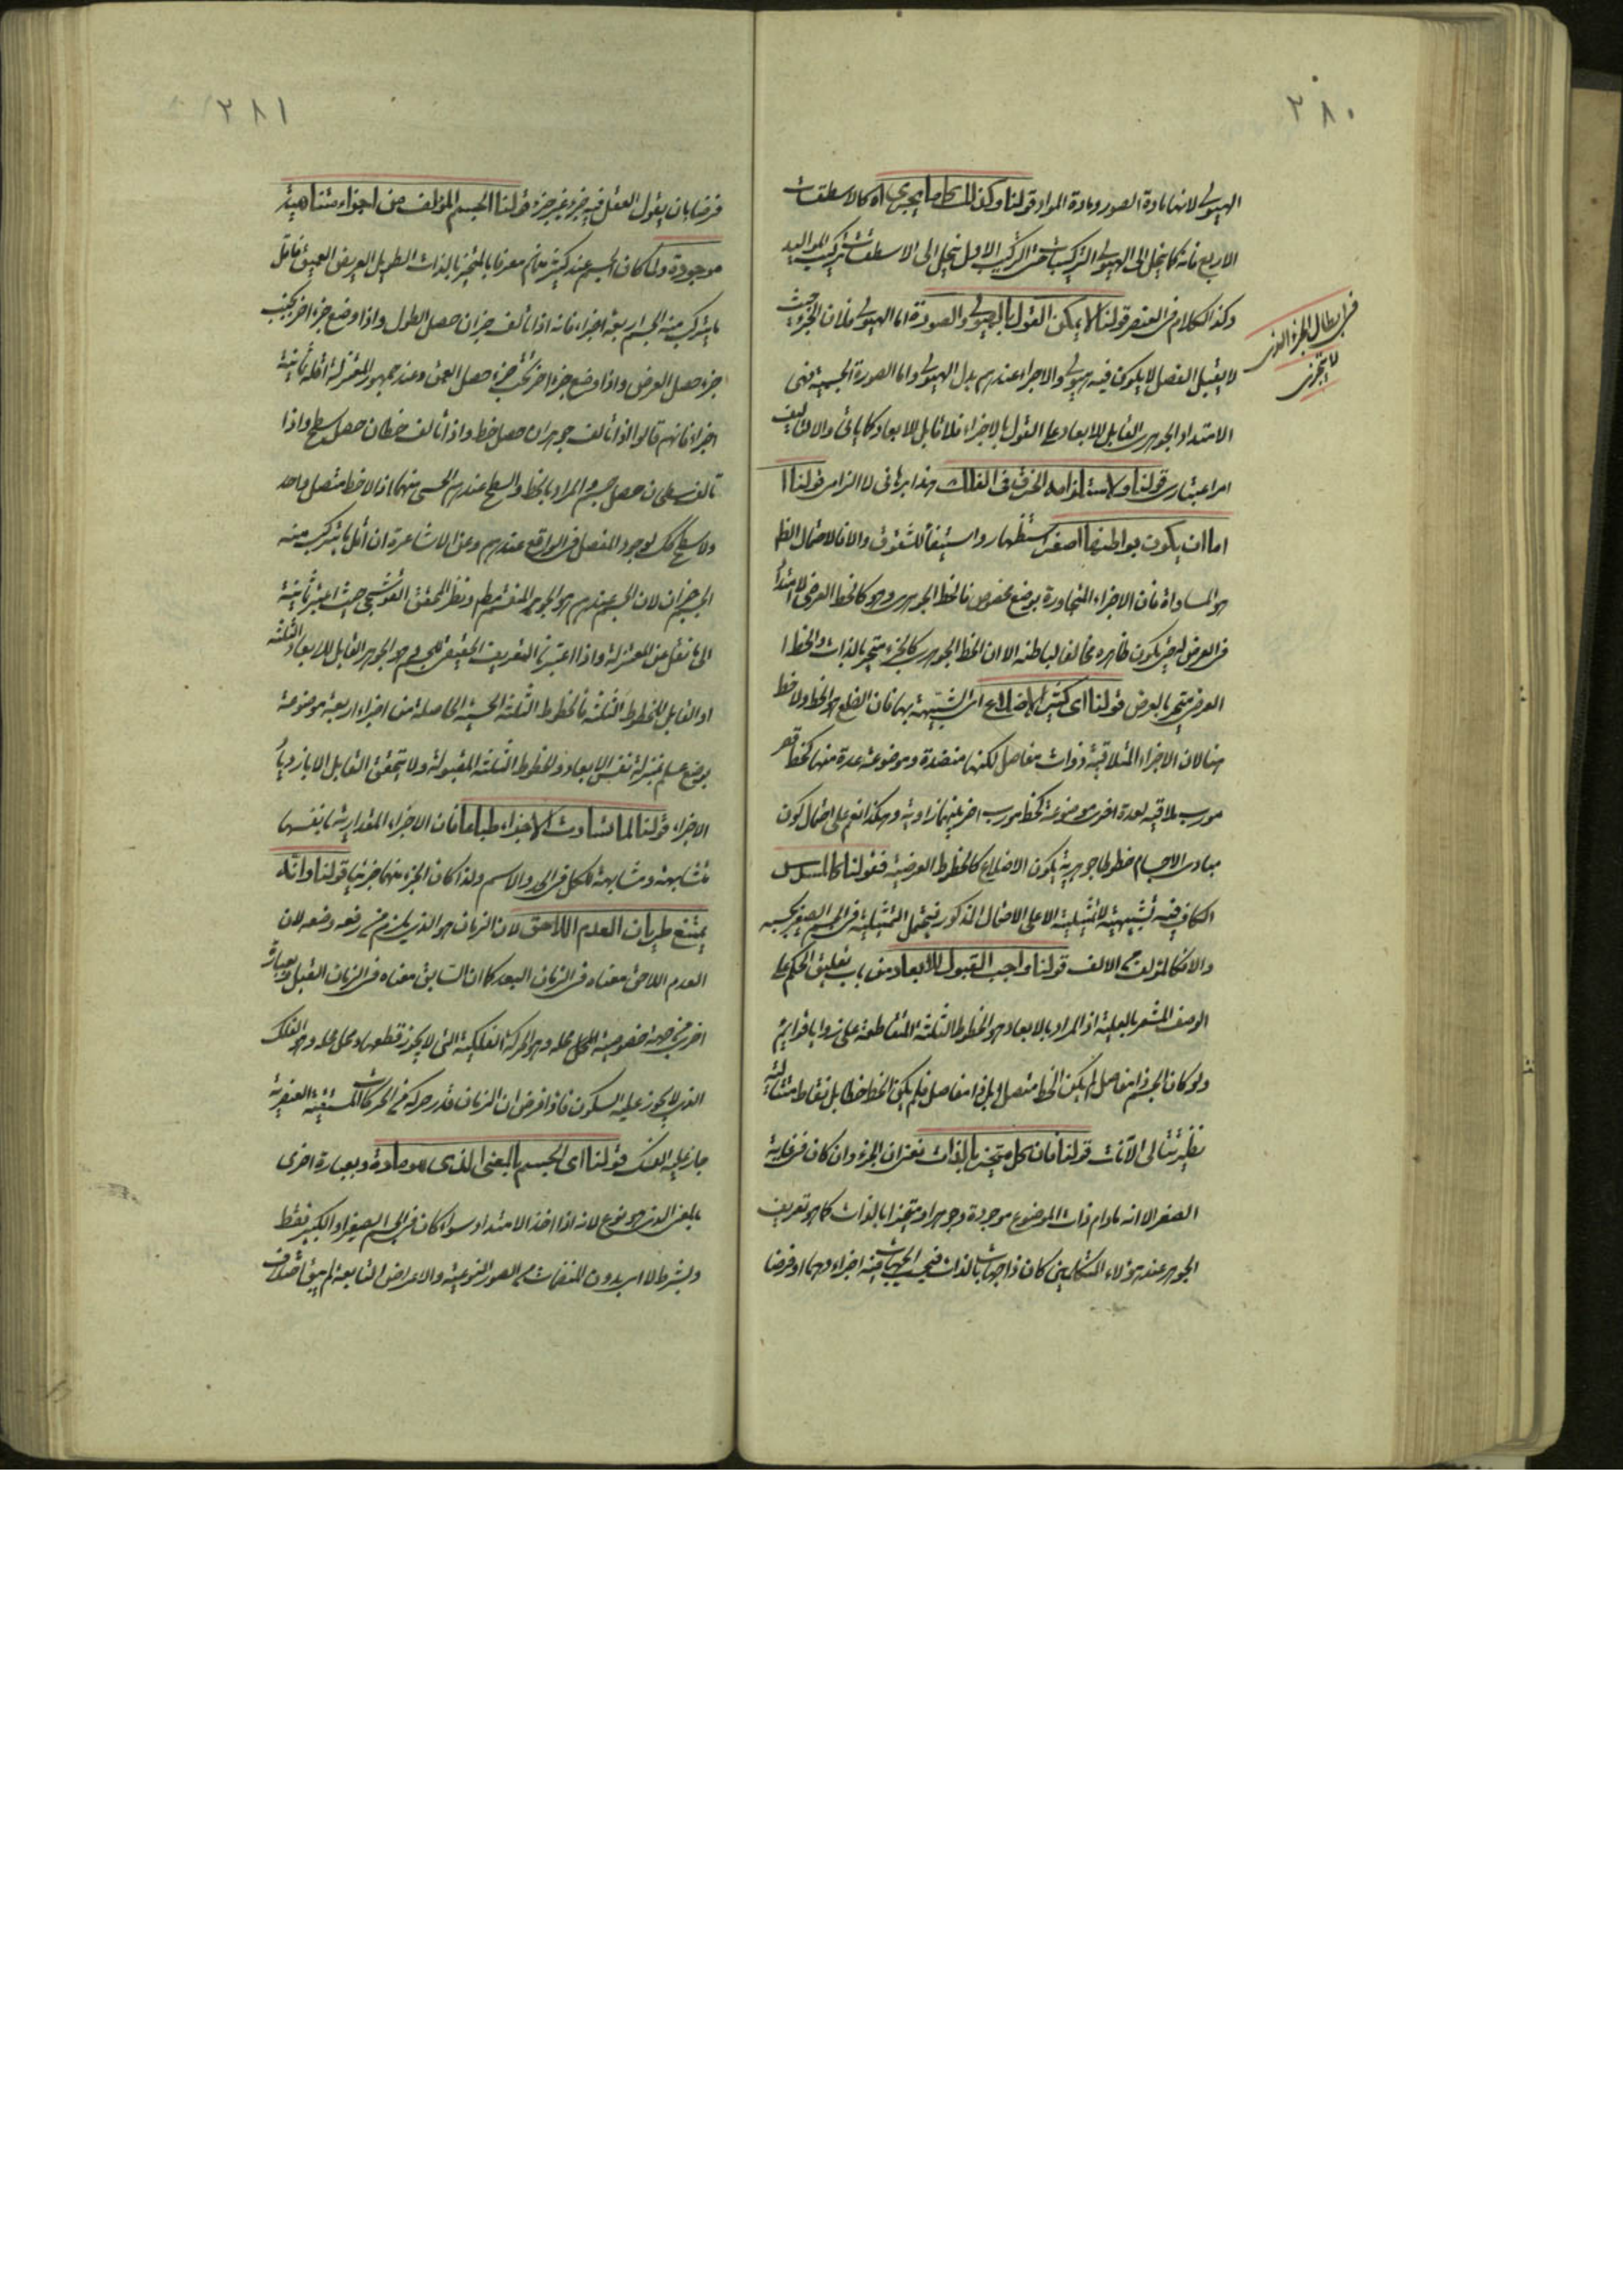 ٢٨٠
الهيولى لانها مادة الصور ومادة المواد قولنا وكذلك ما يجرى اه كالاسطقسات
الاربع فانه كما ينحل الى الهيولى التركيبات حتى التركيب الاول ينحل الى الاسطقسات تركيب المواليد
وكذا الكلام فى العنصر قولنا لا يمكن القول بالهيولى والصورة اما الهيولى فلان الجزء حيث
فى ابطال الجزء الذى
لا يتجزى
لا يقبل الفصل لا يكون فيه هيولى والاجزاء عندهم بدل الهيولى واما الصورة الجسمية فهى
الامتداد الجوهرى القابل للابعاد وعلى القول بالاجزاء فلا قابل للابعاد كما ياتى والاتاليف
امر اعتبارى قولنا ولاستلزامه الخرق فى الفلك هذا برهانى لا الزامى قولنا
اما ان يكون بواطنها اصغر استظهار واستيفاء للشقوق والا فالاحتمال الظ
هو المساواة فان الاجزاء المتجاورة بوضع مخصوص فالخط الجوهرى وهو كالخط العرضى لا امتداد
فى العرض له حتى يكون ظاهره مخالفا لباطنه الا ان الخط الجوهرى كالجزء متحيز بالذات والخط
العرضى متحيز بالعرض قولنا اى كثير الاضلاع اى الشبيهة بها فان الضلع هو الخط ولا خط
هنا لان الاجزاء المتلاقية ذوات مفاصل لكنها منضدة وموضوعة عدة منها كخط
مورب ملاقية لعدة اخرى موضوعة كخط مورب اخر بينهما زاوية وهكذا نعم على احتمال كون
مبادى الاجسام خطوطا جوهرية يكون الاضلاع كالخطوط العرضية فقولنا كالمسلسل
الكاف فيه تشبيهية لا تمثيلية الا على الاحتمال المذكور فيحتمل التمثيلية فى الجسم الصغير بحسبه
والا فكالمؤلف من الالف قولنا واجب القبول للابعاد من باب تعليق الحكم على
الوصف المشعر بالعلية اذ المراد بالابعاد هو الخطوط الثلثة المتقاطعة على زوايا قوايم
ولو كان الجسم ذا مفاصل لم يكن الخط متصلا بل ذا مفاصل فلم يكن الخط خطا بل نقاط متتالية
نظير تتالى الآنات قولنا فان كل متحيز بالذات نعنى ان الجزء وان كان فى غاية
الصغر الا انه مادام ذات الموضوع موجودة وجوهرا ومتحيزا بالذات كما هو تعريف
الجوهر عند هؤلاء المتكلمين كان ذا جهات بالذات فبحسب الجهات فيه اجزاء وهما او فرضا
٢٨١
فرضا بان يقول العقل فيه جزء غير جزء قولنا الجسم المؤلف من اجزاء متناهية
موجودة ولما كان الجسم عند كثير منهم معرفا بالمتحيز بالذات الطويل العريض العميق فاقل
ما يتركب منه الجسم اربعة اجزاء فانه اذا تألف جزءان حصل الطول واذا وضع جزء اخر بجنب
جزء حصل العرض واذا وضع جزء اخر تحت جزء حصل العمق وعند جمهور المعتزلة اقله ثمانية
اجزاء فانهم قالوا اذا تألف جوهران حصل خط واذا تألف خطان حصل سطح واذا
تألف سطحان حصل جسم والمراد بالخط والسطح عندهم الحسى منهما اذ لا خط متصل واحد
ولا سطح كك لوجود المفصل فى الواقع عندهم وعن الاشاعرة ان اقل ما يتركب منه
الجسم جزءان لان الجسم عندهم هو الجوهر المنقسم مطم ونظر المحقق القوشجى حيث اعتبر ثمانية
الى ما نقل عن المعتزلة واذا اعتبرنا التعريف الحقيقى للجسم وهو الجوهر القابل للابعاد الثلثة
او القابل للخطوط الثلثة فالخطوط الثلثة الحسية الحاصلة من اجزاء اربعة موضوعة
بوضع عندهم بمنزلة نفس الابعاد والخطوط الثلثة المقبولة ولا يتحقق القابل الا بازدياد
الاجزاء قولنا لما تساوت الاجزاء طباعا فان الاجزاء المقدارية بانفسها
متشابهة ومشابهة للكل فى الحد والاسم ولذا كان الجزء منها جزئيا قولنا وانه
يمتنع طريان العدم اللاحق لان الزمان هو الذى يلزم من رفعه وضعه لان
العدم اللاحق معناه فى الزمان البعد كما ان السابق معناه فى الزمان القبل وبعبارة
اخرى من جهة خصوصية المحل محله وهو الحركة الفلكية التى لا يجوز قطعها ومحل محله وهو الفلك
الذى لا يجوز عليه السكون فاذا فرض ان الزمان قدر حركة من الحركات المستقيمة العنصرية
جاز عليه الفك قولنا اى الجسم بالمعنى الذى هو مادة وبعبارة اخرى
بالمعنى الذى هو نوع لانه اذا اخذ الامتداد سواء كان فى الجسم الصغير او الكبير فقط
وبشرط لا اى بدون المنضمات من الصور النوعية والاعراض التابعة لم يبق اختلاف